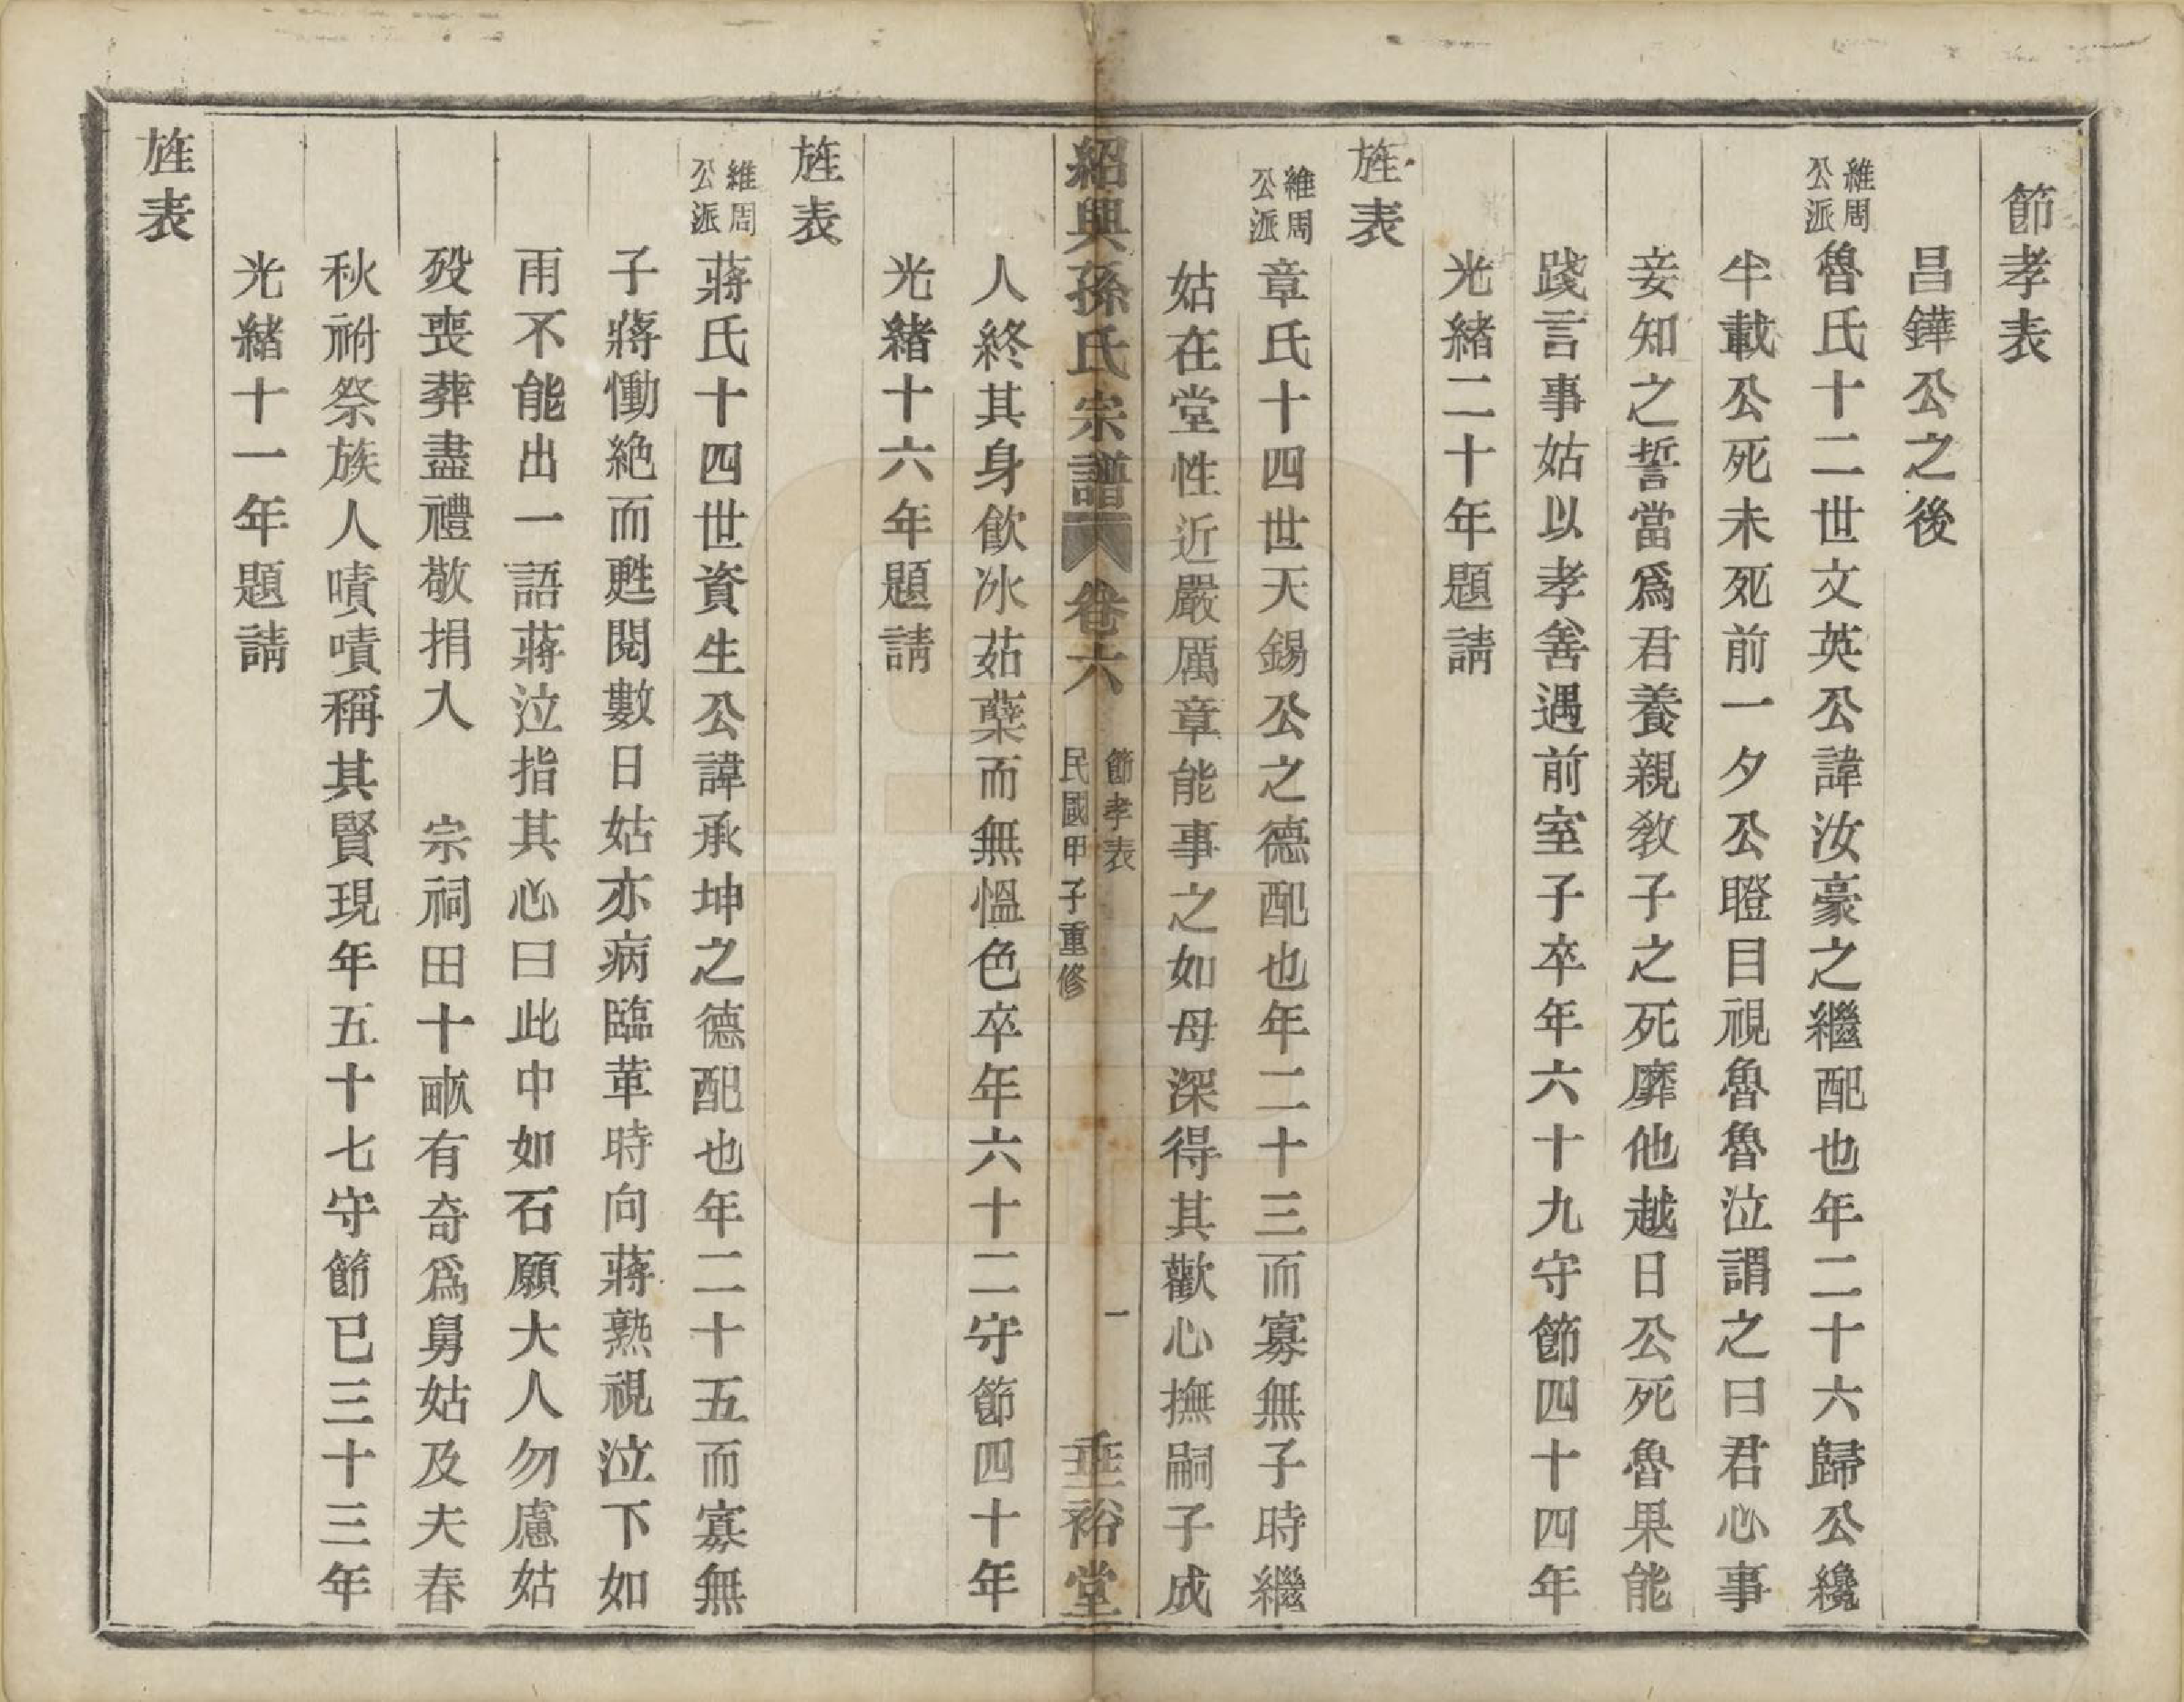 節孝表
昌鏵公之後
維周公派魯氏十二世文英公諱汝豪之繼配也年二十六歸公纔
半載公死未死前一夕公瞪目視魯魯泣謂之曰君心事
妾知之誓當爲君養親敎子之死靡他越日公死魯果能
踐言事姑以孝善遇前室子卒年六十九守節四十四年
光緒二十年題請
旌表
維周公派章氏十四世天錫公之德配也年二十三而寡無子時繼
姑在堂性近嚴厲章能事之如母深得其歡心撫嗣子成
紹興孫氏宗譜 卷六 節孝表 民國甲子重修 一 垂裕堂
人終其身飮冰茹蘗而無慍色卒年六十二守節四十年
光緒十六年題請
旌表
維周公派蔣氏十四世資生公諱承坤之德配也年二十五而寡無
子蔣慟絶而甦閱數日姑亦病臨革時向蔣熟視泣下如
雨不能出一語蔣泣指其心曰此中如石願大人勿慮姑
殁喪葬盡禮敬捐入 宗祠田十畝有奇爲舅姑及夫春
秋祔祭族人嘖嘖稱其賢現年五十七守節已三十三年
光緒十一年題請
旌表